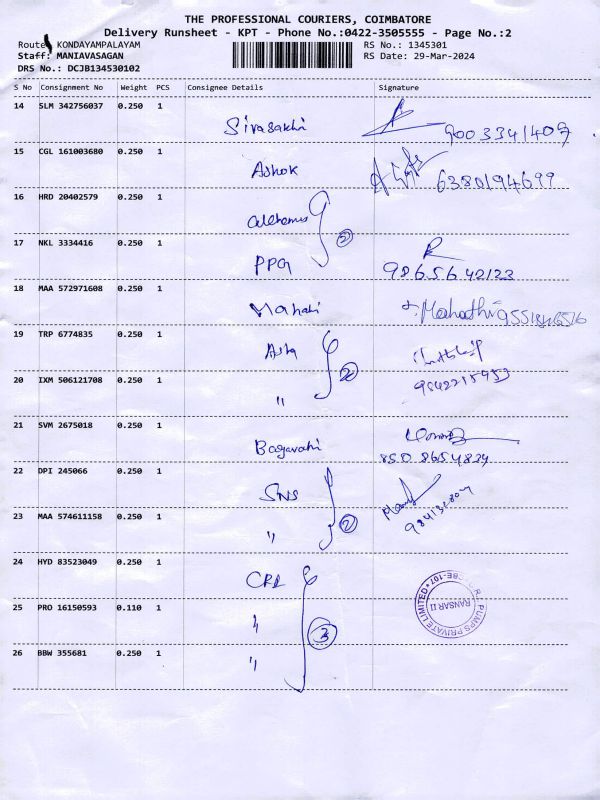 THE PROFESSIONAL COURIERS, COIMBATORE
Delivery Runsheet - KPT - Phone No.:0422-3505555 - Page No.:2
Route: KONDAYAMPALAYAM
RS No.: 1345301
Staff: MANIAVASAGAN
RS Date: 29-Mar-2024
DRS No.: DCJB134530102
S No Consignment No Weight PCS Consignee Details Signature
14 SLM 342756037 0.250 1 Sivasakhi 9003341409
15 CGL 161003680 0.250 1 Ashok 6380194699
16 HRD 20402579 0.250 1 2
17 NKL 3334416 0.250 1 PPG 9865642123
18 MAA 572971608 0.250 1 Mahati
19 TRP 6774835 0.250 1 Asta 2
20 IXM 506121708 0.250 1 " 9842215953
21 SVM 2675018 0.250 1 Bagavathi 850 8654839
22 DPI 245066 0.250 1 SNS 2
23 MAA 574611158 0.250 1 "
24 HYD 83523049 0.250 1 CRI
25 PRO 16150593 0.110 1 " 3
26 BBW 355681 0.250 1 "
PUMPS PRIVATE LIMITED
RANSAR II